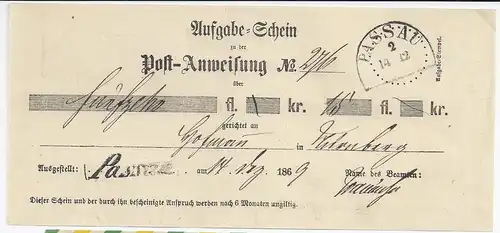 Aufgabe-Schein
zu der
Post-Anweisung № 276
über
fünfzehn fl. \ kr. 15 fl. kr.
gerichtet an
Hofmann in Nürnberg
Ausgestellt: Passau am 14 Dez 1869 Name des Beamten:
Dieser Schein und der durch ihn bescheinigte Anspruch werden nach 6 Monaten ungiltig.
PASSAU
2
14 12
Aufgabe-Stempel.